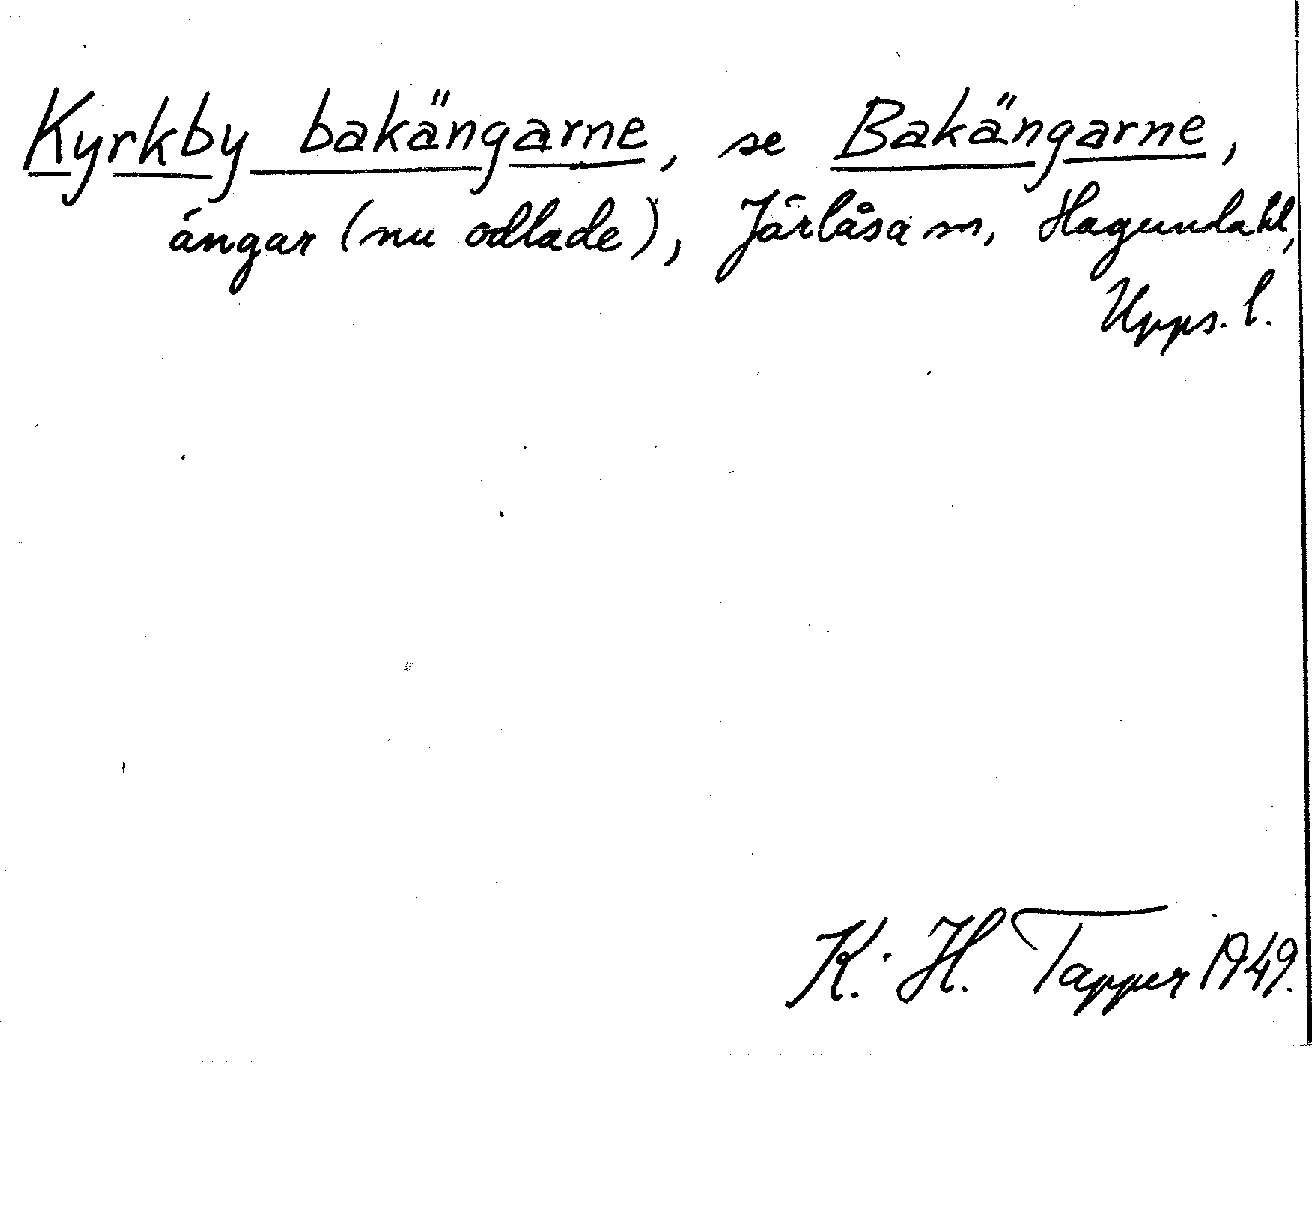 Kyrkby bakängarne, se Bakängarne,
ängar (nu odlade), Järlåsa sn, Hagunda hd,
Upps. l.
K. H. Tapper 1949.